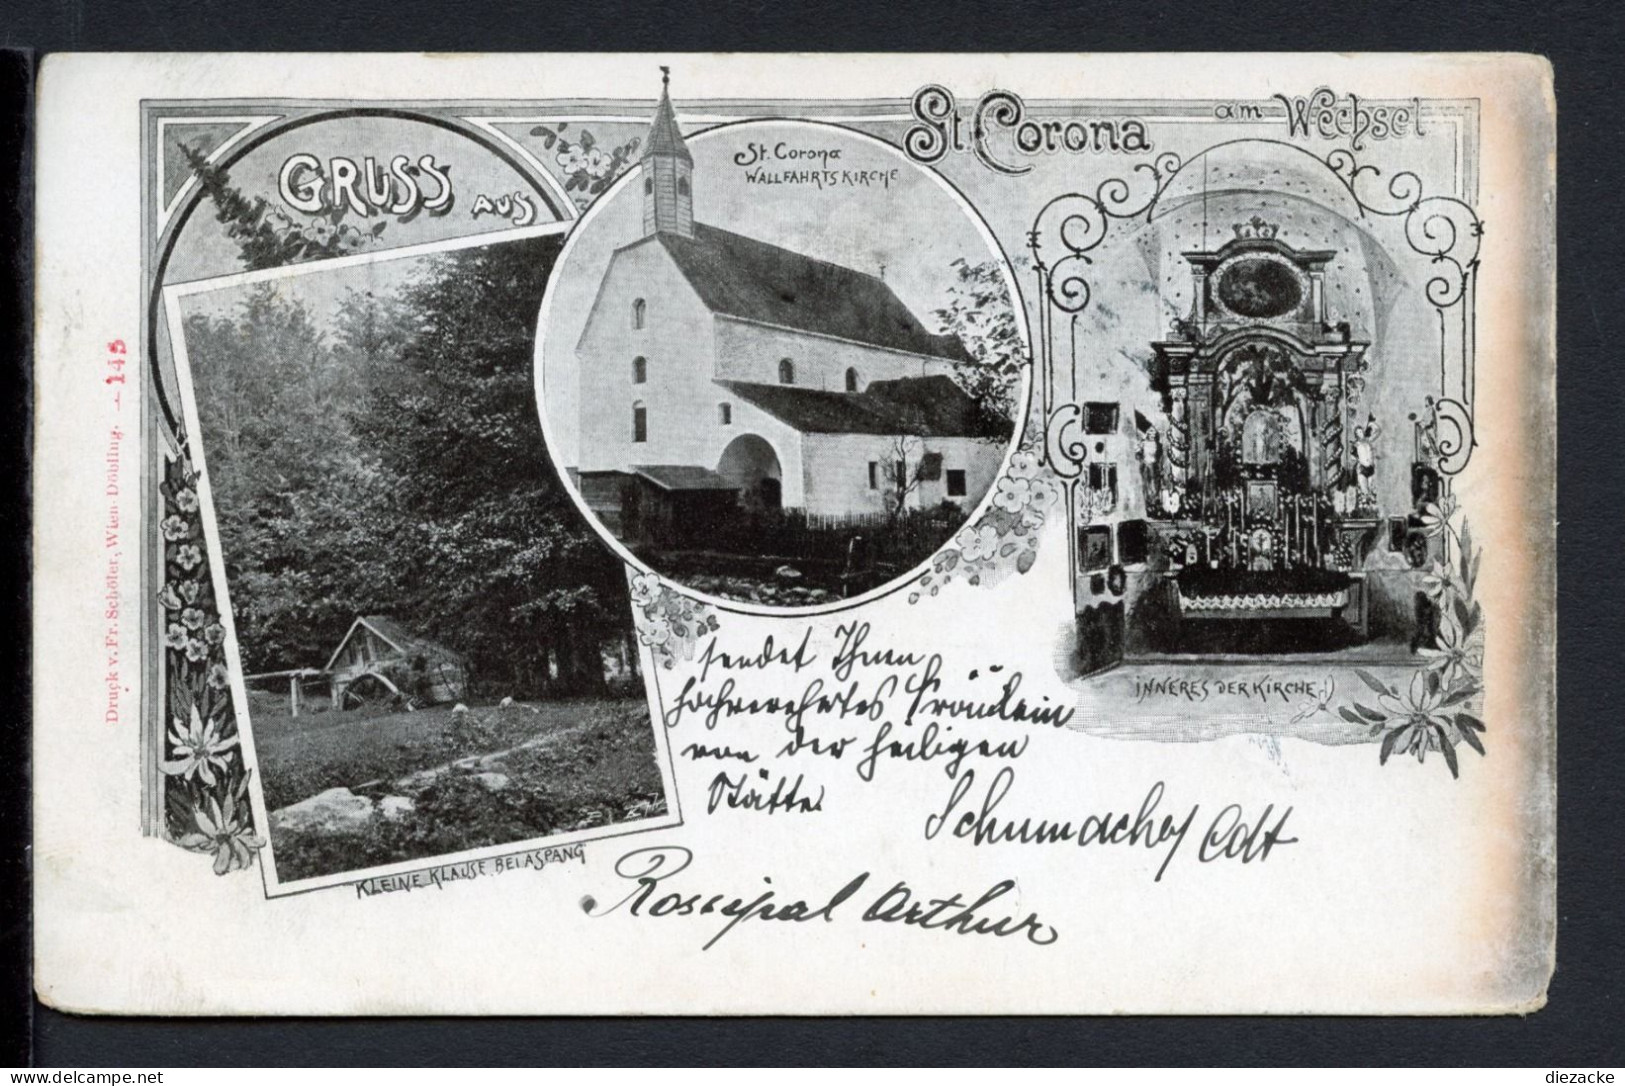 GRUSS AUS
St. Corona am Wechsel
St. Corona
WALLFAHRTSKIRCHE
INNERES DER KIRCHE
KLEINE KLAUSE BEI ASPANG
Druck v. Fr. Schöler, Wien-Döbling. — 145
sendet Ihnen
hochverehrtes Fräulein
von der heiligen
Stätte
Schumacher
Arthur
delcampe.net
diezacke